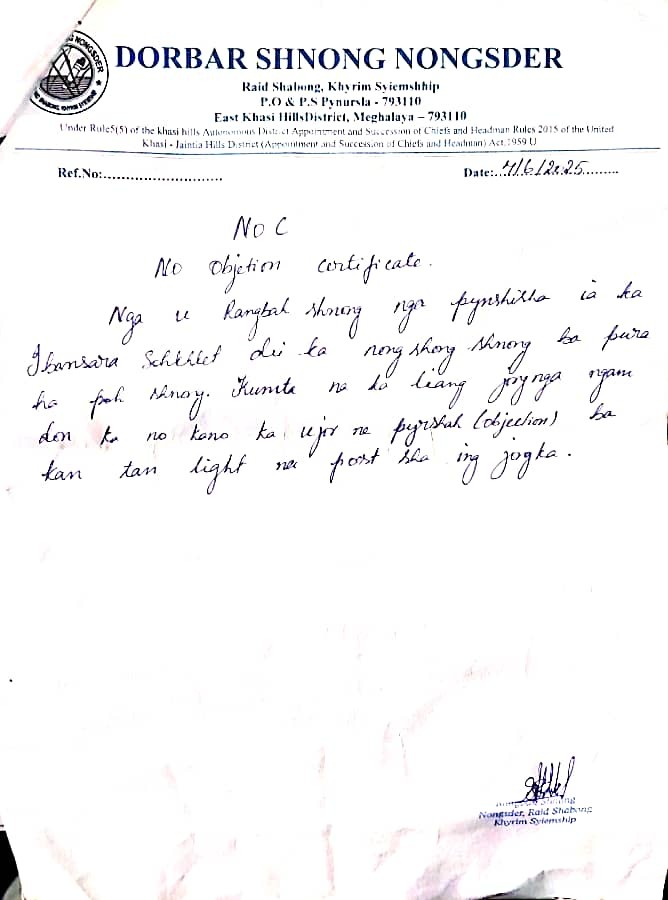 NONGSDER
DORBAR SHNONG NONGSDER
Raid Shabong, Khyrim Syiemshhip
P.O & P.S Pynursla - 793110
East Khasi HillsDistrict, Meghalaya – 793110
Under Rule5(5) of the khasi hills Autonomous District Appointment and Succession of Chiefs and Headman Rules 2015 of the United
Khasi - Jaintia Hills District (Appointment and Succession of Chiefs and Headman) Act,1959 U
Ref.No:............................ Date:..7/6/2025.........
NOC
No Objetion certificate.
Nga u Rangbah Shnong nga pynshisha ia ka
Ibansara dei ka nongshong shnong ba pura
ha poh shnong. Kumta na ka liang jongnga ngam
don ka no kano ka ujor ne pyrshah (objection) ba
kan tan light na post sha ing jongka.
Shnong
Nongsder, Raid Shabong
Khyrim Syiemship